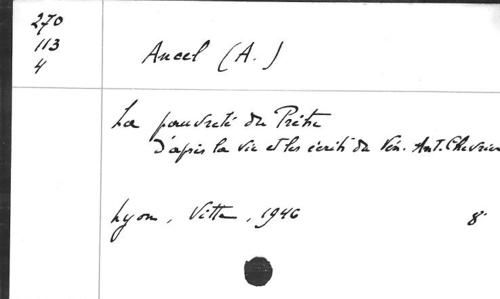 270
113
4
Ancel (A.)
La pauvreté du Prêtre
D'après la vie et les écrits du Vén. Ant. Chevrier
Lyon, Vitte, 1946 8°